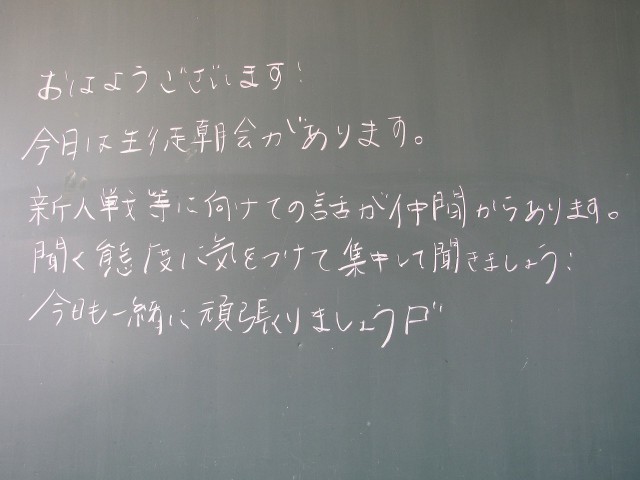 おはようございます!
今日は生徒朝会があります。
新人戦等に向けての話が仲間からあります。
聞く態度に気をつけて集中して聞きましょう!
今日も一緒に頑張りましょう